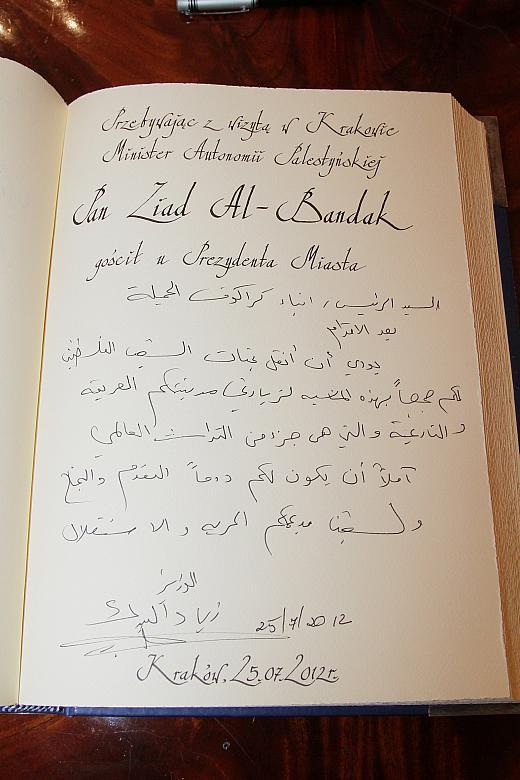 Przebywając z wizytą w Krakowie
Minister Autonomii Palestyńskiej
Pan Ziad Al-Bandak
gościł u Prezydenta Miasta
السيد الرئيس / أبناء كراكوف الجميلة
بعد الاحترام
بودي أن أنقل تحيات الشعب الفلسطيني
لكم جميعاً بهذه المناسبة لزيارتي مدينتكم العريقة
والتاريخية والتي هي جزء من التراث العالمي
آملاً أن يكون لكم دوماً التقدم والنجاح
ولشعبنا بدعمكم الحرية والاستقلال
الوزير
زياد البندك
25/7/2012
Kraków, 25.07.2012r.